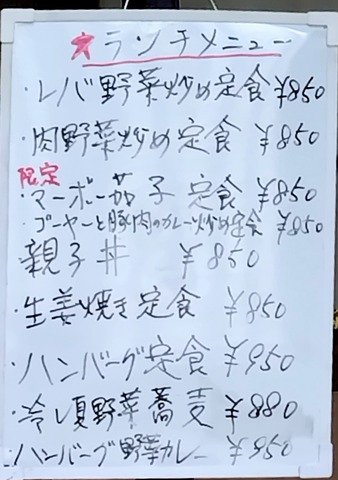 ★ランチメニュー
・レバ野菜炒め定食 ¥850
・肉野菜炒め定食 ¥850
限定
・マーボー茄子 定食 ¥850
・ゴーヤーと豚肉のカレー炒め定食 ¥850
親子丼 ¥850
・生姜焼き定食 ¥850
・ハンバーグ定食 ¥950
・冷し夏野菜蕎麦 ¥880
・ハンバーグ野菜カレー